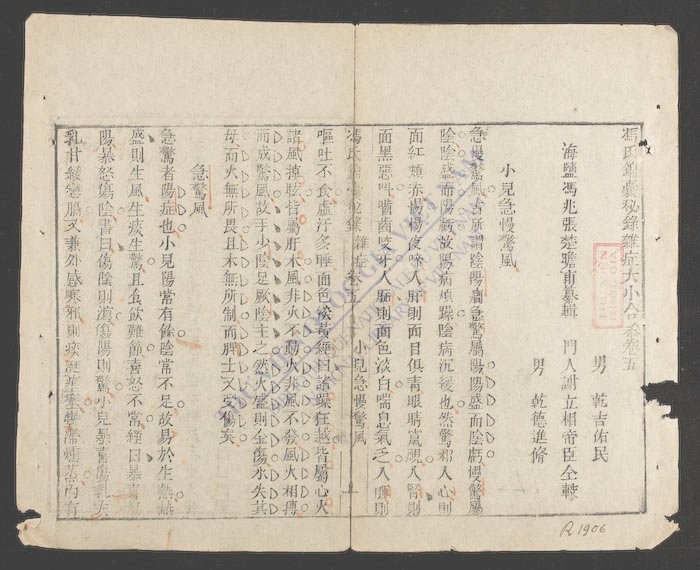 馮氏錦囊秘錄雜症大小合參卷五
海鹽馮兆張楚瞻甫纂輯 門人謝立相帝臣仝較
男 乾吉佑民
男 乾德進修
小兒急慢驚風
急慢驚風古所謂陰陽癇急驚屬陽陽盛而陰虧慢驚屬
陰陰盛而陽虧故陽病煩躁陰病沉緩也然驚邪入心則
面紅頰赤惕惕夜啼入肝則面目俱青眼睛竄視入腎則
面黑惡叫嚙齒咬牙入肺則面色淡白喘息氣乏入脾則
馮氏錦囊秘錄 雜症 卷五 小兒急慢驚風 一
嘔吐不食虛汗多睡面色痰黃經曰諸躁狂越皆屬心火
諸風掉眩皆屬肝木風非火不動火非風不發風火相搏
而成驚風故手少陰足厥陰主之然火盛則金傷水失其
母而火無所畏且木無所制而脾土又受傷矣
急驚風
急驚者陽症也小兒陽常有餘陰常不足故易於生熱熱
盛則生風生痰生驚且食飲難節喜怒不常經曰暴喜傷
陽暴怒傷陰書曰傷陰則瀉傷陽則驚小兒暴喜傷乳夫
乳甘緩戀膈又兼外感寒邪則痰涎壅塞 內有
R1906